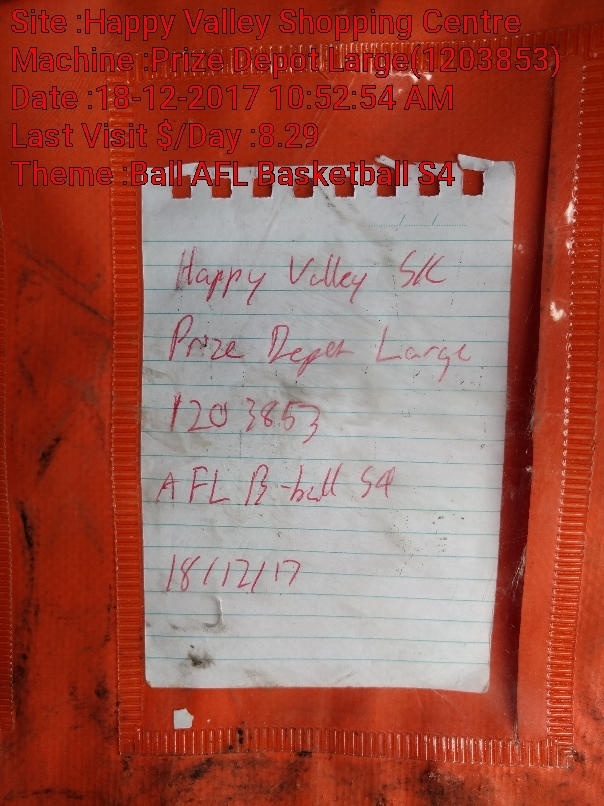 Site :Happy Valley Shopping Centre
Machine :Prize Depot Large(1203853)
Date :18-12-2017 10:52:54 AM
Last Visit $/Day :8.29
Theme :Ball AFL Basketball S4
Happy Valley S/C
Prize Depot Large
1203853
AFL B-ball S4
18/12/17